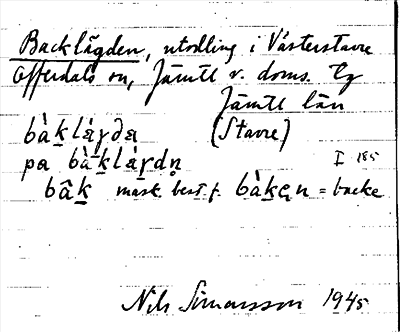 Backlägden, utodling i Västerstavre
Offerdals sn, Jämtl v. doms. Lg
Jämtl län
bàḵláɣða (Stavre)
pa bàḵláɣdn̥ I 185
bâḵ mask. best f. bàḵen = backe
Nils Simonsson 1945